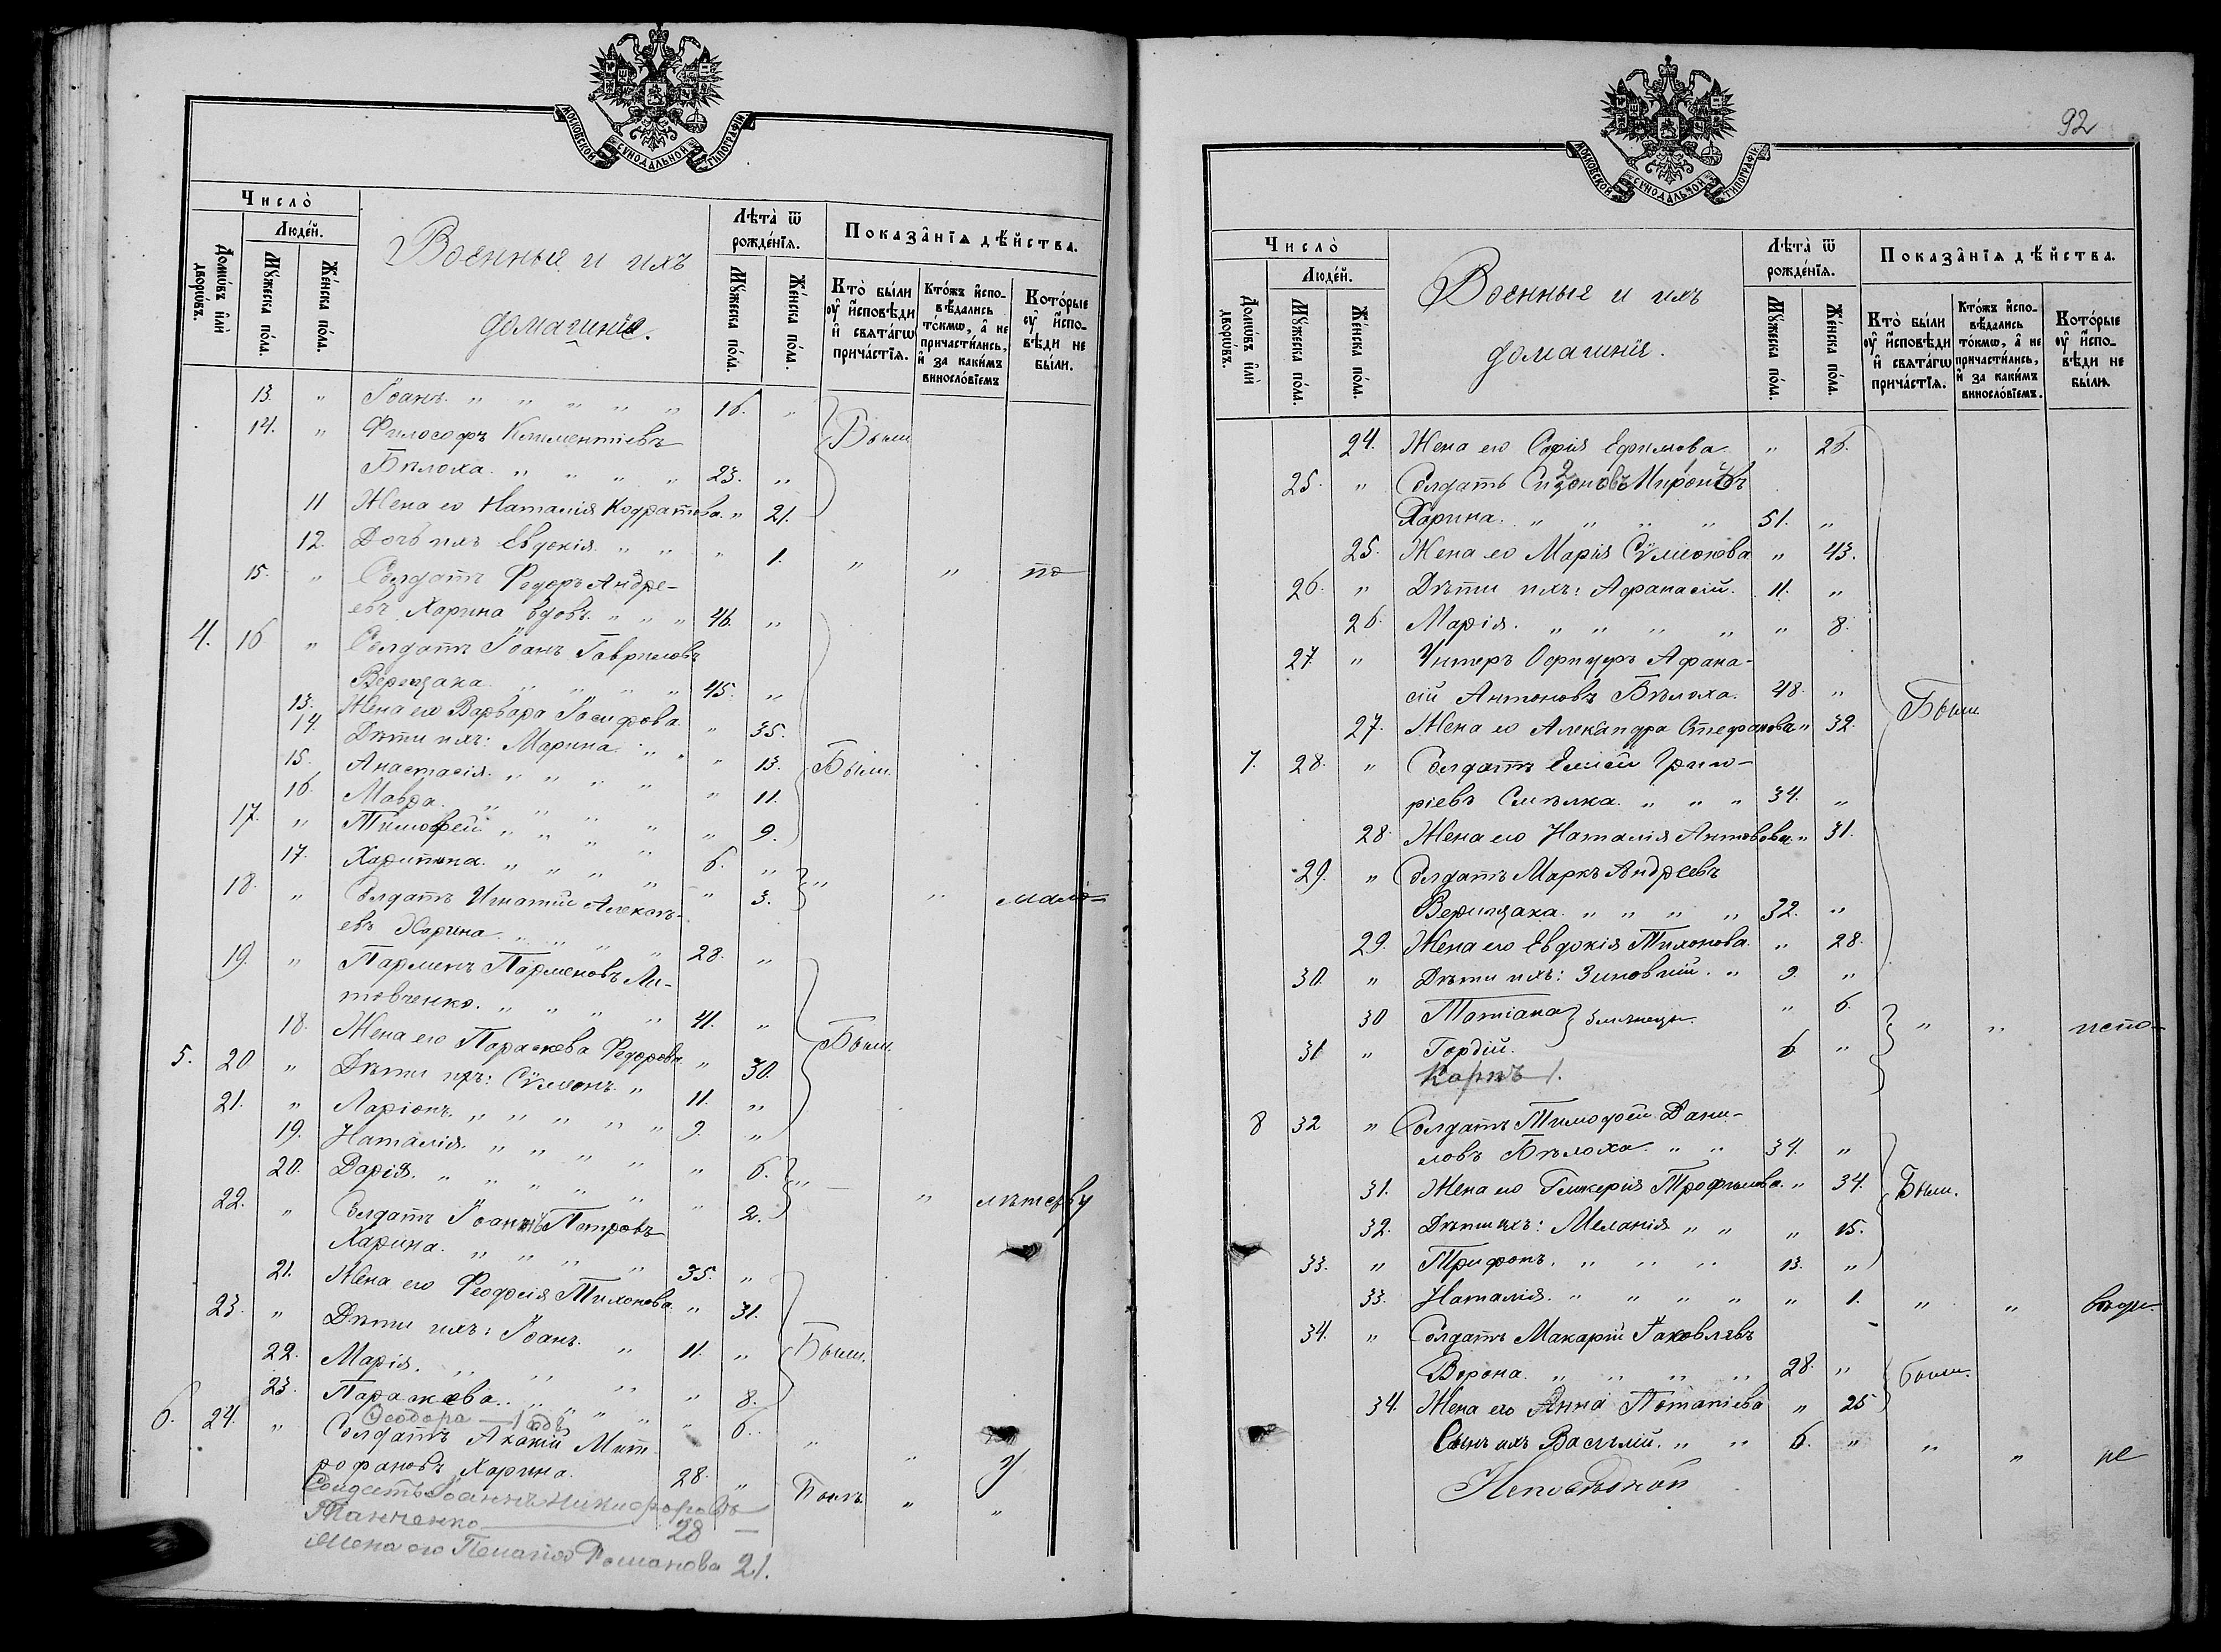 МОСКОВСКОЙ СѴНОДАЛЬНОЙ ТИПОГРАФІИ
Число̀
Людей.
Домѡвъ и҆лѝ дворѡвъ.
Мꙋжеска пола.
Женска пола.
Военные и ихъ
домашніе.
Лѣта̀ ѿ рожденїѧ.
Мꙋжеска пола.
Женска пола.
Показанїѧ дѣйства.
Кто̀ были оу҆ исповѣди и҆ свѧтагѡ причастїѧ.
Ктожъ исповѣдались токмѡ, а҆ не причастились, и҆ за какимъ винословїемъ
Которые оу҆ исповѣди не были.
13. " Іоанъ. " " " " " 16. "
14. " Философъ Климентіевъ
Бѣлоха. " " " " 23. " Были
11 Жена его Наталія Кодратова. " 21.
12. Дочь ихъ Евдокія. " " " 1. " " по
15. " Солдатъ Федоръ Андре-
евъ Харина вдовъ. " " " 46. "
4. 16 " Солдатъ Іоанъ Гавриловъ
Верещака. " " " " 45. "
13. Жена его Варвара Іосифова " 35.
14. Дѣти ихъ: Марина. " " " 13. Были.
15. Анастасія. " " " " " 11.
16. Мавра. " " " " " 9.
17. " Тимофей. " " " " 6. "
17. Харитина. " " " " " 3. " " мало-
18. " Солдатъ Игнатій Алексѣ-
евъ Харина. " " " " 28. "
19. " Парменъ Парменовъ Ли-
товченко. " " " " 41. "
18. Жена его Параскева Федорова " 30. Были.
5. 20 " Дѣти ихъ: Сѵмеонъ. " 11. "
21. " Ларіонъ. " " " " " 9. "
19. Наталія. " " " " " 6.
20. Дарія. " " " " " " 2. " " лѣтству
22. " Солдатъ Іоаннъ Петровъ
Харина. " " " " 35. "
21. Жена его Феодосія Тихонова. " 31.
23. " Дѣти ихъ: Іоанъ. " 11. " Были.
22. Марія. " " " " 8.
23. Параскева. " " " " 6. "
Ѳеодора — 1 годъ
6. 24. " Солдатъ Акакій Мит-
рофановъ Харина. 28. " Былъ. " "
Солдатъ Іоаннъ Никифоровъ
Ткаченко 28 —
Жена его Пелагія Романова 21.
92
МОСКОВСКОЙ СѴНОДАЛЬНОЙ ТИПОГРАФІИ
Число̀
Людей.
Домѡвъ и҆лѝ дворѡвъ.
Мꙋжеска пола.
Женска пола.
Военные и ихъ
домашніе.
Лѣта̀ ѿ рожденїѧ.
Мꙋжеска пола.
Женска пола.
Показанїѧ дѣйства.
Кто̀ были оу҆ исповѣди и҆ свѧтагѡ причастїѧ.
Ктожъ исповѣдались токмѡ, а҆ не причастились, и҆ за какимъ винословїемъ.
Которые оу҆ исповѣди не были.
24. Жена его Софія Ефимова " 26.
25. " Солдатъ Миронъ
Харина. " " " " 51. "
25. Жена его Марія Сѵмеонова " 43.
26. " Дѣти ихъ: Афанасій. 11. "
26. Марія. " " " " " 8.
27. " Унтеръ Офицеръ Афана-
сій Антоновъ Бѣлоха. 48. "
27. Жена его Александра Стефанова " 32. Были.
7. 28. " Солдатъ Елисей Григо-
ріевъ Смѣлка. " " " 34. "
28 Жена его Наталія Антонова " 31.
29. " Солдатъ Маркъ Андреевъ
Верещака. " " " " 32. "
29. Жена его Евдокія Тихонова. " 28.
30. " Дѣти ихъ: Зиновій. " 9. "
30 Татіана } близнецы. " 6. " " испо-
31 " Гордій. 6. "
Карпъ 1.
8 32 " Солдатъ Тимофей Дани-
ловъ Бѣлоха. " " 34. "
31. Жена его Гликерія Трофимова. " 34. Были.
32. Дѣти ихъ: Меланія " " " 15.
33. " Трифонъ. " " " 13. "
33. Наталія. " " " " " 1. " " вѣди
34. " Солдатъ Макарій Іаковлевъ
Ворона. " " " " 28. " были.
34. Жена его Анна Потапіева " 25
Сынъ ихъ Василій. " " 6. " " " не